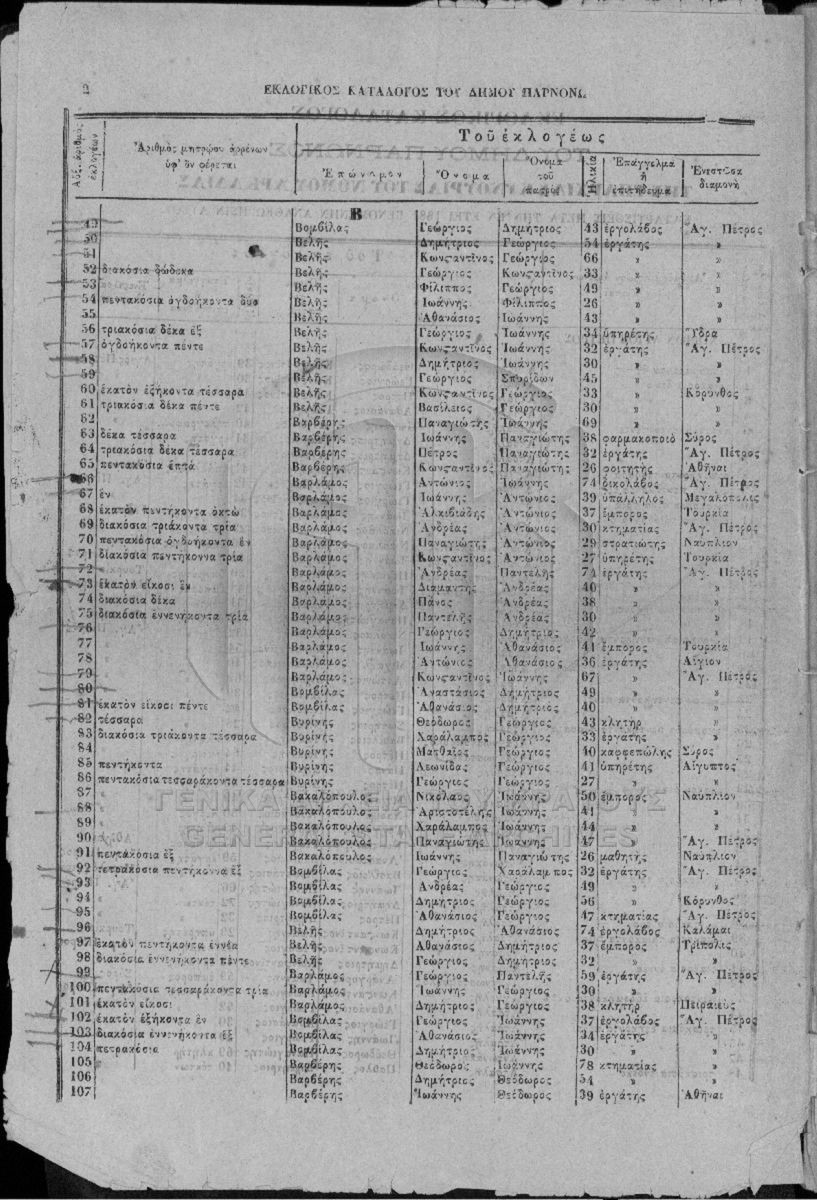 2 ΕΚΛΟΓΙΚΟΣ ΚΑΤΑΛΟΓΟΣ ΤΟΥ ΔΗΜΟΥ ΠΑΡΝΟΝΩ
Αὔξ. ἀριθμὸς ἐκλογέων
Ἀριθμὸς μητρῴου ἀρρένων ὑφ' ὃν φέρεται
Τοῦ ἐκλογέως
Ἐπώνυμον Ὄνομα Ὄνομα τοῦ πατρὸς Ἡλικία Ἐπάγγελμα ἢ ἐπιτήδευμα Ἐνεστῶσα διαμονὴ
Β
49 Βομβίλας Γεώργιος Δημήτριος 43 ἐργολάβος Ἅγ. Πέτρος
50 Βελῆς Δημήτριος Γεώργιος 54 ἐργάτης »
51 Βελῆς Κωνσταντῖνος Γεώργιος 66 » »
52 διακόσια δώδεκα Βελῆς Γεώργιος Κωνσταντῖνος 33 » »
53 Βελῆς Φίλιππος Γεώργιος 49 » »
54 πεντακόσια ὀγδοήκοντα δύο Βελῆς Ἰωάννης Φίλιππος 26 » »
55 Βελῆς Ἀθανάσιος Ἰωάννης 43 » »
56 τριακόσια δέκα ἓξ Βελῆς Γεώργιος Ἰωάννης 34 ὑπηρέτης Ὕδρα
57 ὀγδοήκοντα πέντε Βελῆς Κωνσταντῖνος Ἰωάννης 32 ἐργάτης Ἅγ. Πέτρος
58 Βελῆς Δημήτριος Ἰωάννης 30 » »
59 Βελῆς Γεώργιος Σπυρίδων 45 » »
60 ἑκατὸν ἑξήκοντα τέσσαρα Βελῆς Κωνσταντῖνος Γεώργιος 33 » Κόρινθος
61 τριακόσια δέκα πέντε Βελῆς Βασίλειος Γεώργιος 30 » »
62 Βαρβέρης Παναγιώτης Ἰωάννης 69 » »
63 δέκα τέσσαρα Βαρβέρης Ἰωάννης Παναγιώτης 38 φαρμακοποιὸ Σύρος
64 τριακόσια δέκα τέσσαρα Βαρβέρης Πέτρος Παναγιώτης 32 ἐργάτης Ἅγ. Πέτρος
65 πεντακόσια ἑπτὰ Βαρβέρης Κωνσταντῖνος Παναγιώτης 26 φοιτητὴς Ἀθῆναι
66 Βαρλάμος Αντώνιος Ἰωάννης 74 δικολάβος Ἅγ. Πέτρος
67 ἓν Βαρλάμος Ἰωάννης Ἀντώνιος 39 ὑπάλληλος Μεγαλόπολις
68 ἑκατὸν πεντήκοντα ὀκτὼ Βαρλάμος Ἀλκιβιάδης Ἀντώνιος 37 ἔμπορος Τουρκία
69 διακόσια τριάκοντα τρία Βαρλάμος Ἀνδρέας Ἀντώνιος 30 κτηματίας Ἅγ. Πέτρος
70 πεντακόσια ὀγδοήκοντα ἓν Βαρλάμος Παναγιώτης Ἀντώνιος 29 στρατιώτης Ναύπλιον
71 διακόσια πεντήκοννα τρία Βαρλάμος Κωνσταντῖνος Ἀντώνιος 27 ὑπηρέτης Τουρκία
72 Βαρλάμος Ἀνδρέας Παντελῆς 74 ἐργάτης Ἅγ. Πέτρος
73 ἑκατὸν εἴκοσι ἓν Βαρλάμος Διαμαντῆς Ἀνδρέας 40 » »
74 διακόσια δέκα Βαρλάμος Πάνος Ἀνδρέας 38 » »
75 διακόσια ἐννενήκοντα τρία Βαρλάμος Παντελῆς Ἀνδρέας 30 » »
76 Βαρλάμος Γεώργιος Δημήτριος 42 » »
77 Βαρλάμος Ἰωάννης Ἀθανάσιος 41 ἔμπορος Τουρκία
78 Βαρλάμος Ἀντώνιος Ἀθανάσιος 36 ἐργάτης Αἴγιον
79 Βαρλάμος Κωνσταντῖνος Ἰωάννης 67 » Ἅγ. Πέτρος
80 Βομβίλας Ἀναστάσιος Δημήτριος 49 » »
81 ἑκατὸν εἴκοσι πέντε Βομβίλας Ἀθανάσιος Δημήτριος 40 » »
82 τέσσαρα Βυρίνης Θεόδωρος Γεώργιος 43 κλητὴρ »
83 διακόσια τριάκοντα τέσσαρα Βυρίνης Χαράλαμπος Γεώργιος 33 ἐργάτης »
84 Βυρίνης Ματθαῖος Γεώργιος 40 καφφεπώλης Σύρος
85 πεντήκοντα Βυρίνης Λεωνίδας Γεώργιος 41 ὑπηρέτης Αἴγυπτος
86 πεντακόσια τεσσαράκοντα τέσσαρα Βυρίνης Γεώργιος Γεώργιος 27 » »
87 Βακαλόπουλος Νικόλαος Ἰωάννης 50 ἔμπορος Ναύπλιον
88 Βακαλόπουλος Ἀριστοτέλης Ἰωάννης 41 » »
89 Βακαλόπουλος Χαράλαμπος Ἰωάννης 44 » »
90 Βακαλόπουλος Παναγιώτης Ἰωάννης 47 » Ἅγ. Πέτρος
91 πεντακόσια ἓξ Βακαλόπουλος Ἰωάννης Παναγιώτης 26 μαθητὴς Ναύπλιον
92 τετρακόσια πεντήκοννα ἓξ Βομβίλας Γεώργιος Χαράλαμπος 32 ἐργάτης Ἅγ. Πέτρος
93 Βομβίλας Ανδρέας Γεώργιος 49 » »
94 Βομβίλας Δημήτριος Γεώργιος 56 » Κόρινθος
95 Βομβίλας Ἀθανάσιος Γεώργιος 47 κτηματίας Ἅγ. Πέτρος
96 Βελῆς Δημήτριος Ἀθανάσιος 74 ἐργολάβος Καλάμαι
97 ἑκατὸν πεντήκοντα ἐννέα Βελῆς Ἀθανάσιος Δημήτριος 37 ἔμπορος Τρίπολις
98 διακόσια ἐννενήκοντα πέντε Βελῆς Γεώργιος Δημήτριος 32 » »
99 Βαρλάμος Γεώργιος Παντελῆς 59 ἐργάτης Ἅγ. Πέτρος
100 πεντακόσια τεσσαράκοντα τρία Βαρλάμος Ἰωάννης Γεώργιος 30 » »
101 ἑκατὸν εἴκοσι Βαρλάμος Δημήτριος Γεώργιος 38 κλητὴρ Πειραιεὺς
102 ἑκατὸν ἑξήκοντα ἓν Βομβίλας Γεώργιος Ἰωάννης 37 ἐργολάβος Ἅγ. Πέτρος
103 διακόσια ἐννενήκοντα ἓξ Βομβίλας Ἀθανάσιος Ἰωάννης 34 ἐργάτης »
104 πετρακόσια Βομβίλας Δημήτριος Ἰωάννης 30 » »
105 Βαρβέρης Θεόδωρος Ἰωάννης 78 κτηματίας »
106 Βαρβέρης Δημήτριος Θεόδωρος 54 » »
107 Βαρβέρης Ἰωάννης Θεόδωρος 39 ἐργάτης Ἀθῆναι
ΓΕΝΙΚΑ ΑΡΧΕΙΑ ΤΟΥ ΚΡΑΤΟΥΣ
GENERAL STATE ARCHIVES